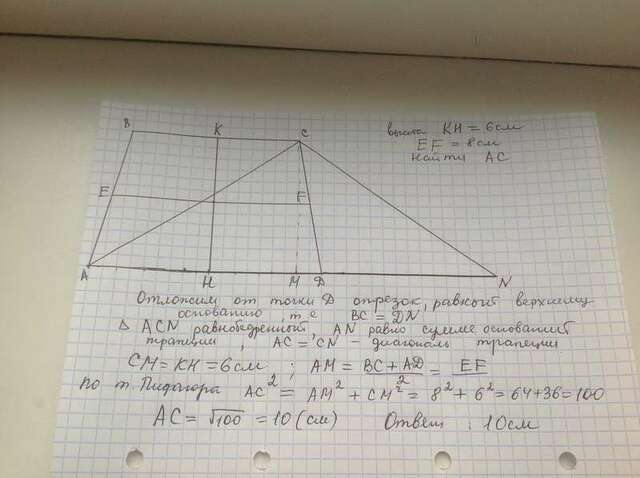 B K C
высота KH = 6 см
EF = 8 см
Найти AC
E F
A H M D N
Отложим от точки D отрезок, равный верхнему
основанию, т.е BC = DN
Δ ACN равнобедренный, AN равно сумме оснований
трапеции, AC = CN – диагональ трапеции
CM = KH = 6 см ; AM = (BC + AD)/2 = EF
По т. Пифагора AC² = AM² + CM² = 8² + 6² = 64+36 = 100
AC = √100 = 10 (см) Ответ : 10 см